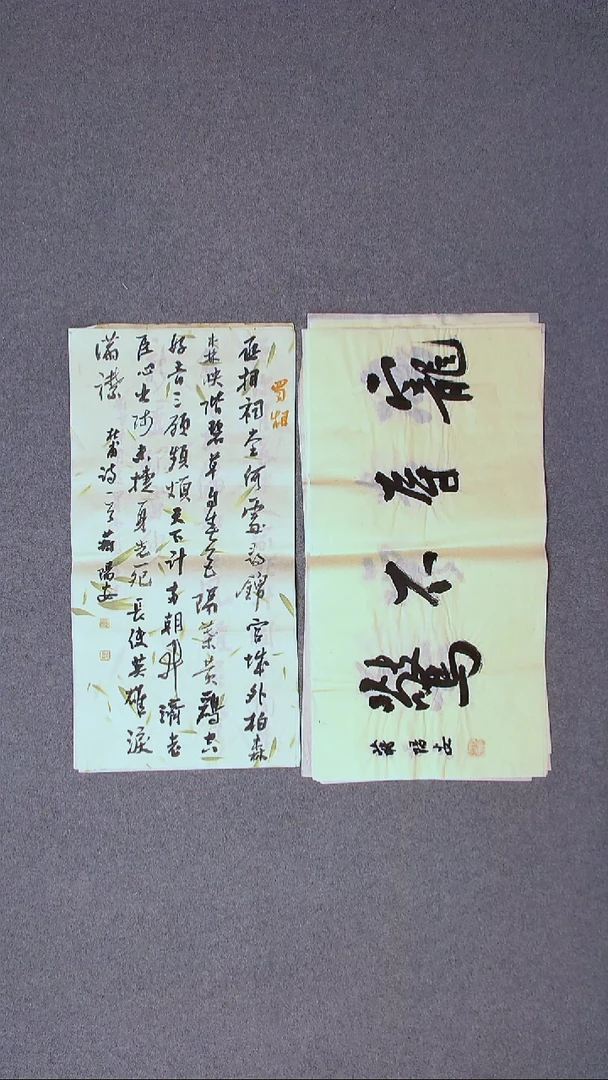 蜀相
丞相祠堂何處尋錦官城外柏森
森映階碧草自春色隔葉黃鸝空
好音三顧頻煩天下計兩朝開濟老
臣心出师未捷身先死長使英雄淚
滿襟 杜甫詩一首 蔣陽安
寵辱不驚
蔣陽安